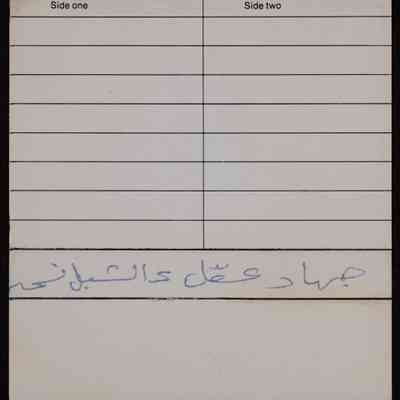 Side one
Side two
جهاد عقل عالشبل